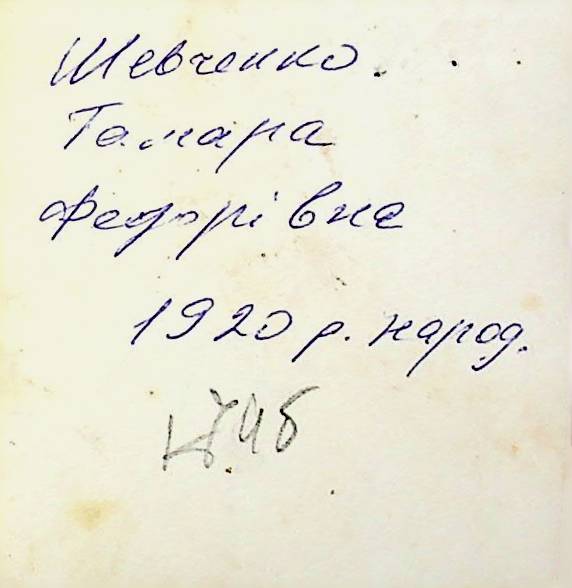 Шевченко
Тамара
Федорівна
1920 р. народ.